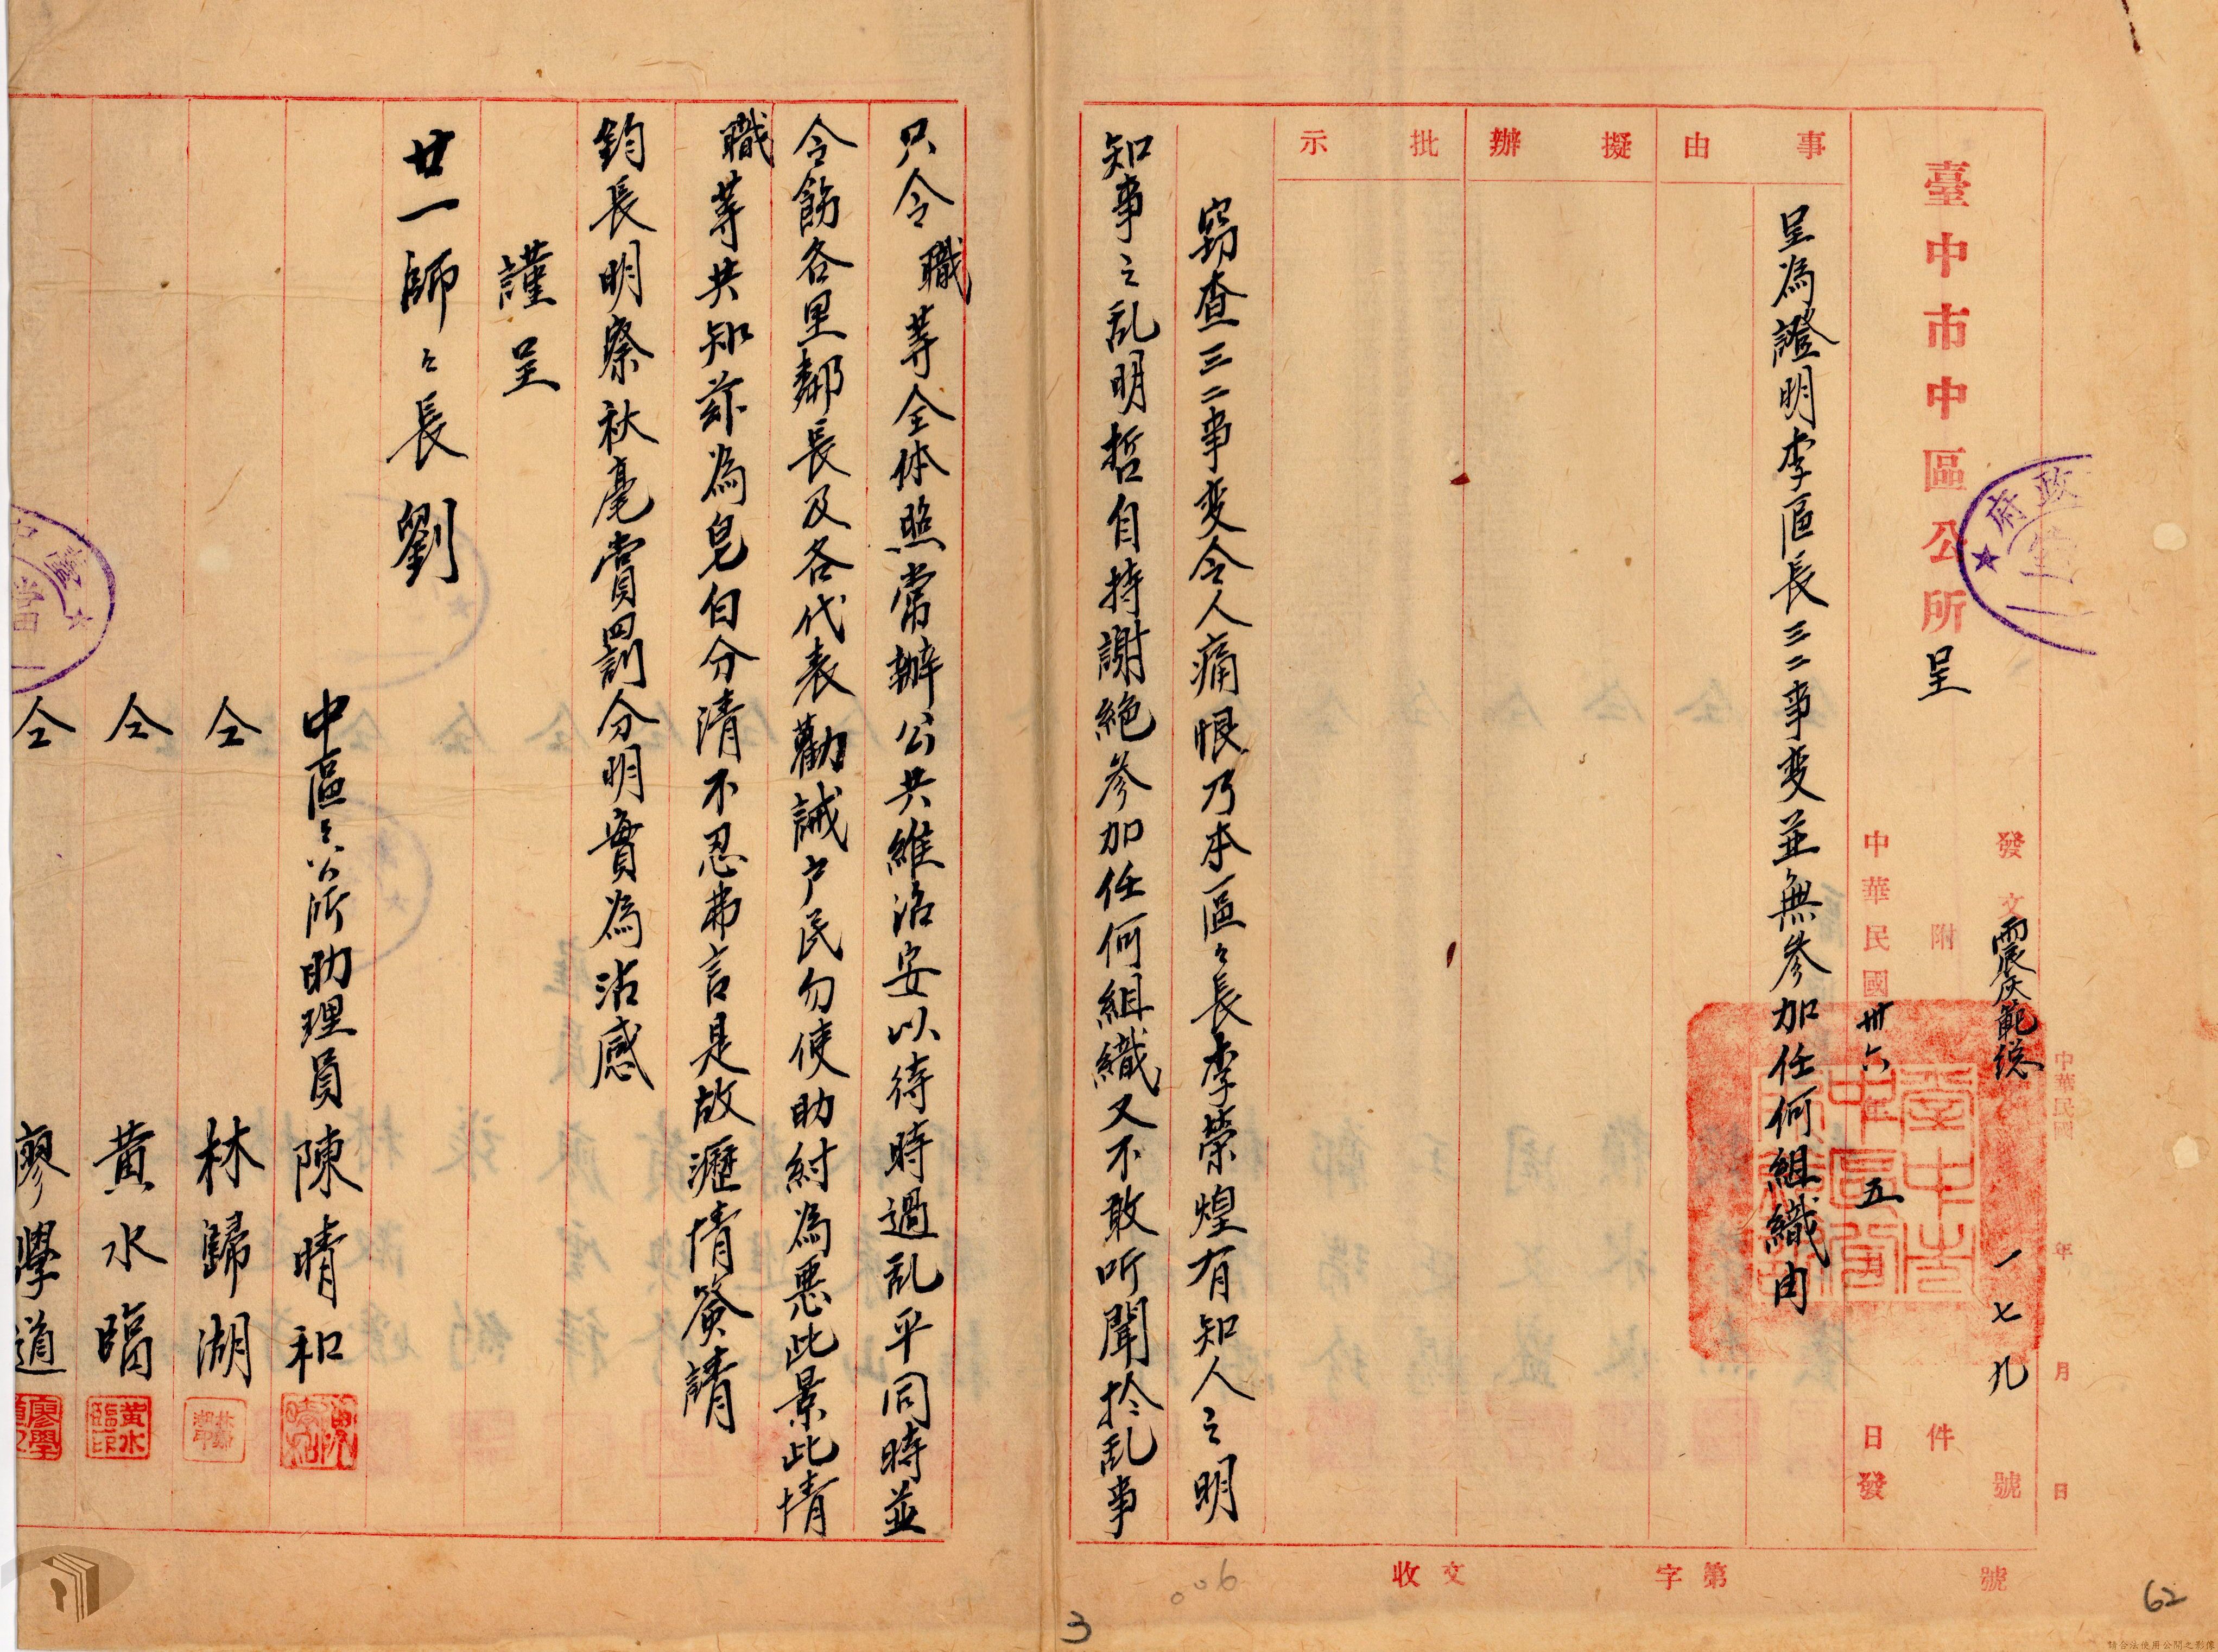 臺中市中區公所 呈
發文 震灰範總 一七九 號
附 件
中華民國卅六年五月 日發
事由
呈為證明李區長三二事变並無參加任何組織由
擬辦
批示
竊查三二事变令人痛恨乃本區々長李榮煌有知人之明
知事之乱明哲自持謝絕參加任何組織又不敢听聞於乱事
只令職等全体照常辦公共維治安以待時過乱平同時並
令飭各里鄰長及各代表勸誡户民勿使助紂為惡此景此情
職等共知茲為皂白分清不忍弗言是故瀝情簽請
鈞長明察秋毫賞罰分明實為沾感
謹呈
廿一師々長劉
中區々公所助理員 陳晴和
仝 林歸湖
仝 黃水臨
仝 廖學道
黃水臨印
中華民國 年 月 日
收文 字第 號
政府
006
3
62
請合法使用公開之影像